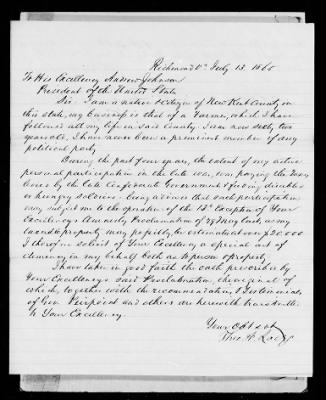 Richmond Va July 13. 1865
To His Excellency Andrew Johnson
President of the United States
Sir. I am a native & citizen of New Kent County in
this state, my business is that of a Farmer, which I have
followed all my life in said County. I am now sixty two
years old. I have never been a prominent member of any
political party
During the past four years, the extent of my active
personal participation in the late war, was paying the taxes
levied by the late Confederate Government & feeding disabled
or hungry soldiers. Being advised that such participation
may subject me to the operation of the 13th Exception of Your
Excellency's Amnesty Proclamation of 29 May last, as my
taxable property may possibly, be estimated at over $20.000
I therefore solicit of Your Excellency a special act of
clemency in my behalf both as to person & property.
I have taken in good faith the oath prescribed by
Your Excellency's said Proclamation, the original of
which, together with the recommendation, & testimonials
of Gov. Peirpoint and others are herewith transmitted
to Your Excellency.
Your obt svt